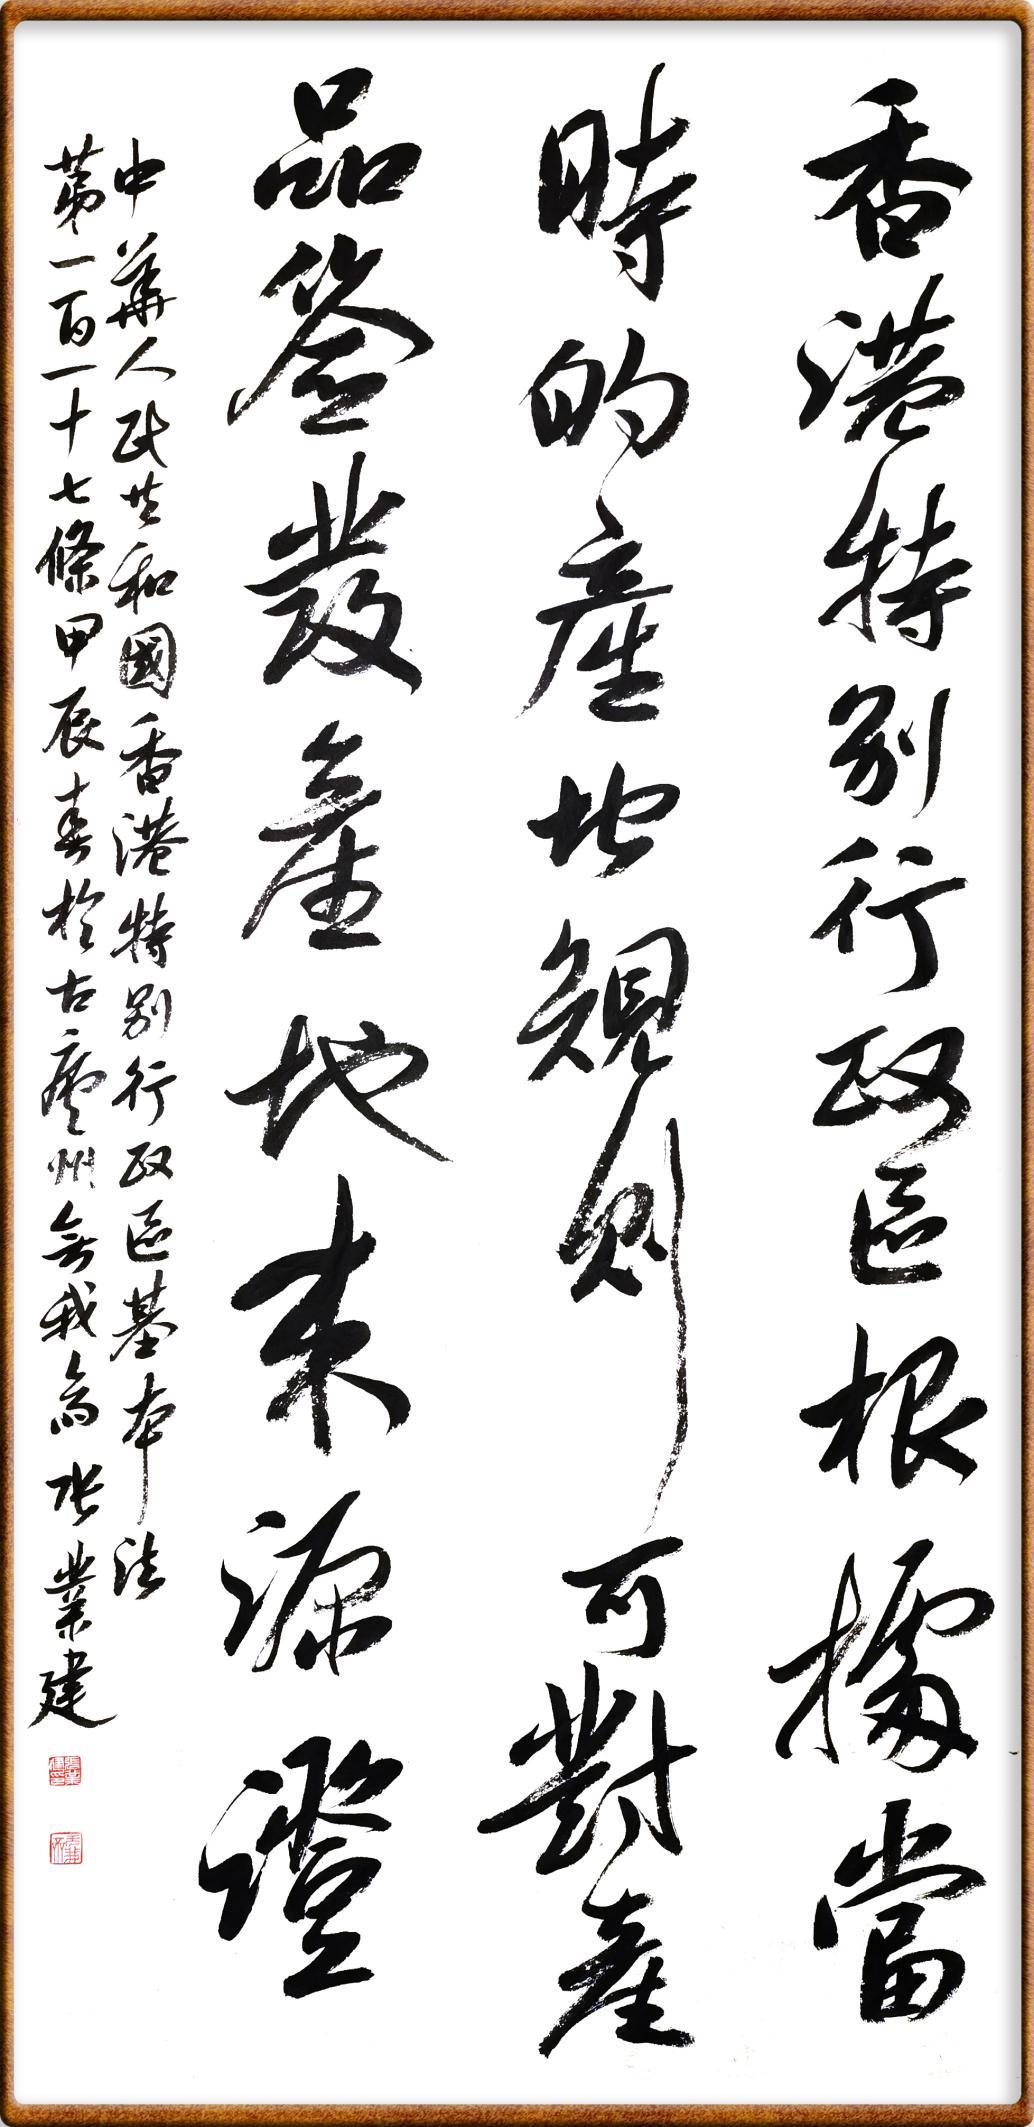 香港特别行政區根據當
時的產地規則可對產
品签發產地来源證
中華人民共和國香港特别行政區基本法
第一百一十七條甲辰春於古廬州無我斋张業建